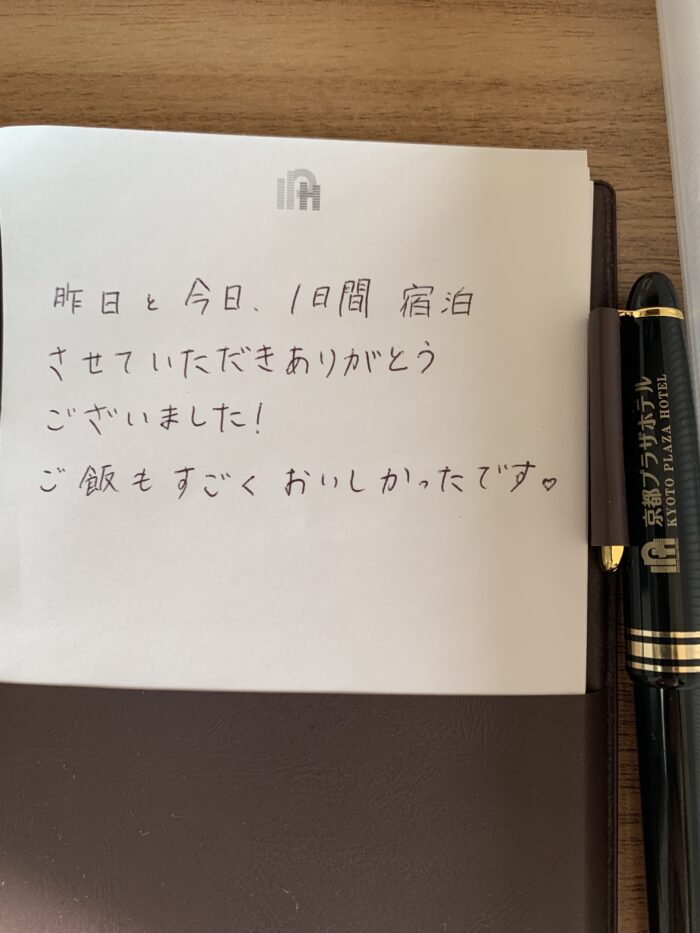 昨日と今日、1日間 宿泊
させていただきありがとう
ございました!
ご飯もすごくおいしかったです♡
京都プラザホテル
KYOTO PLAZA HOTEL